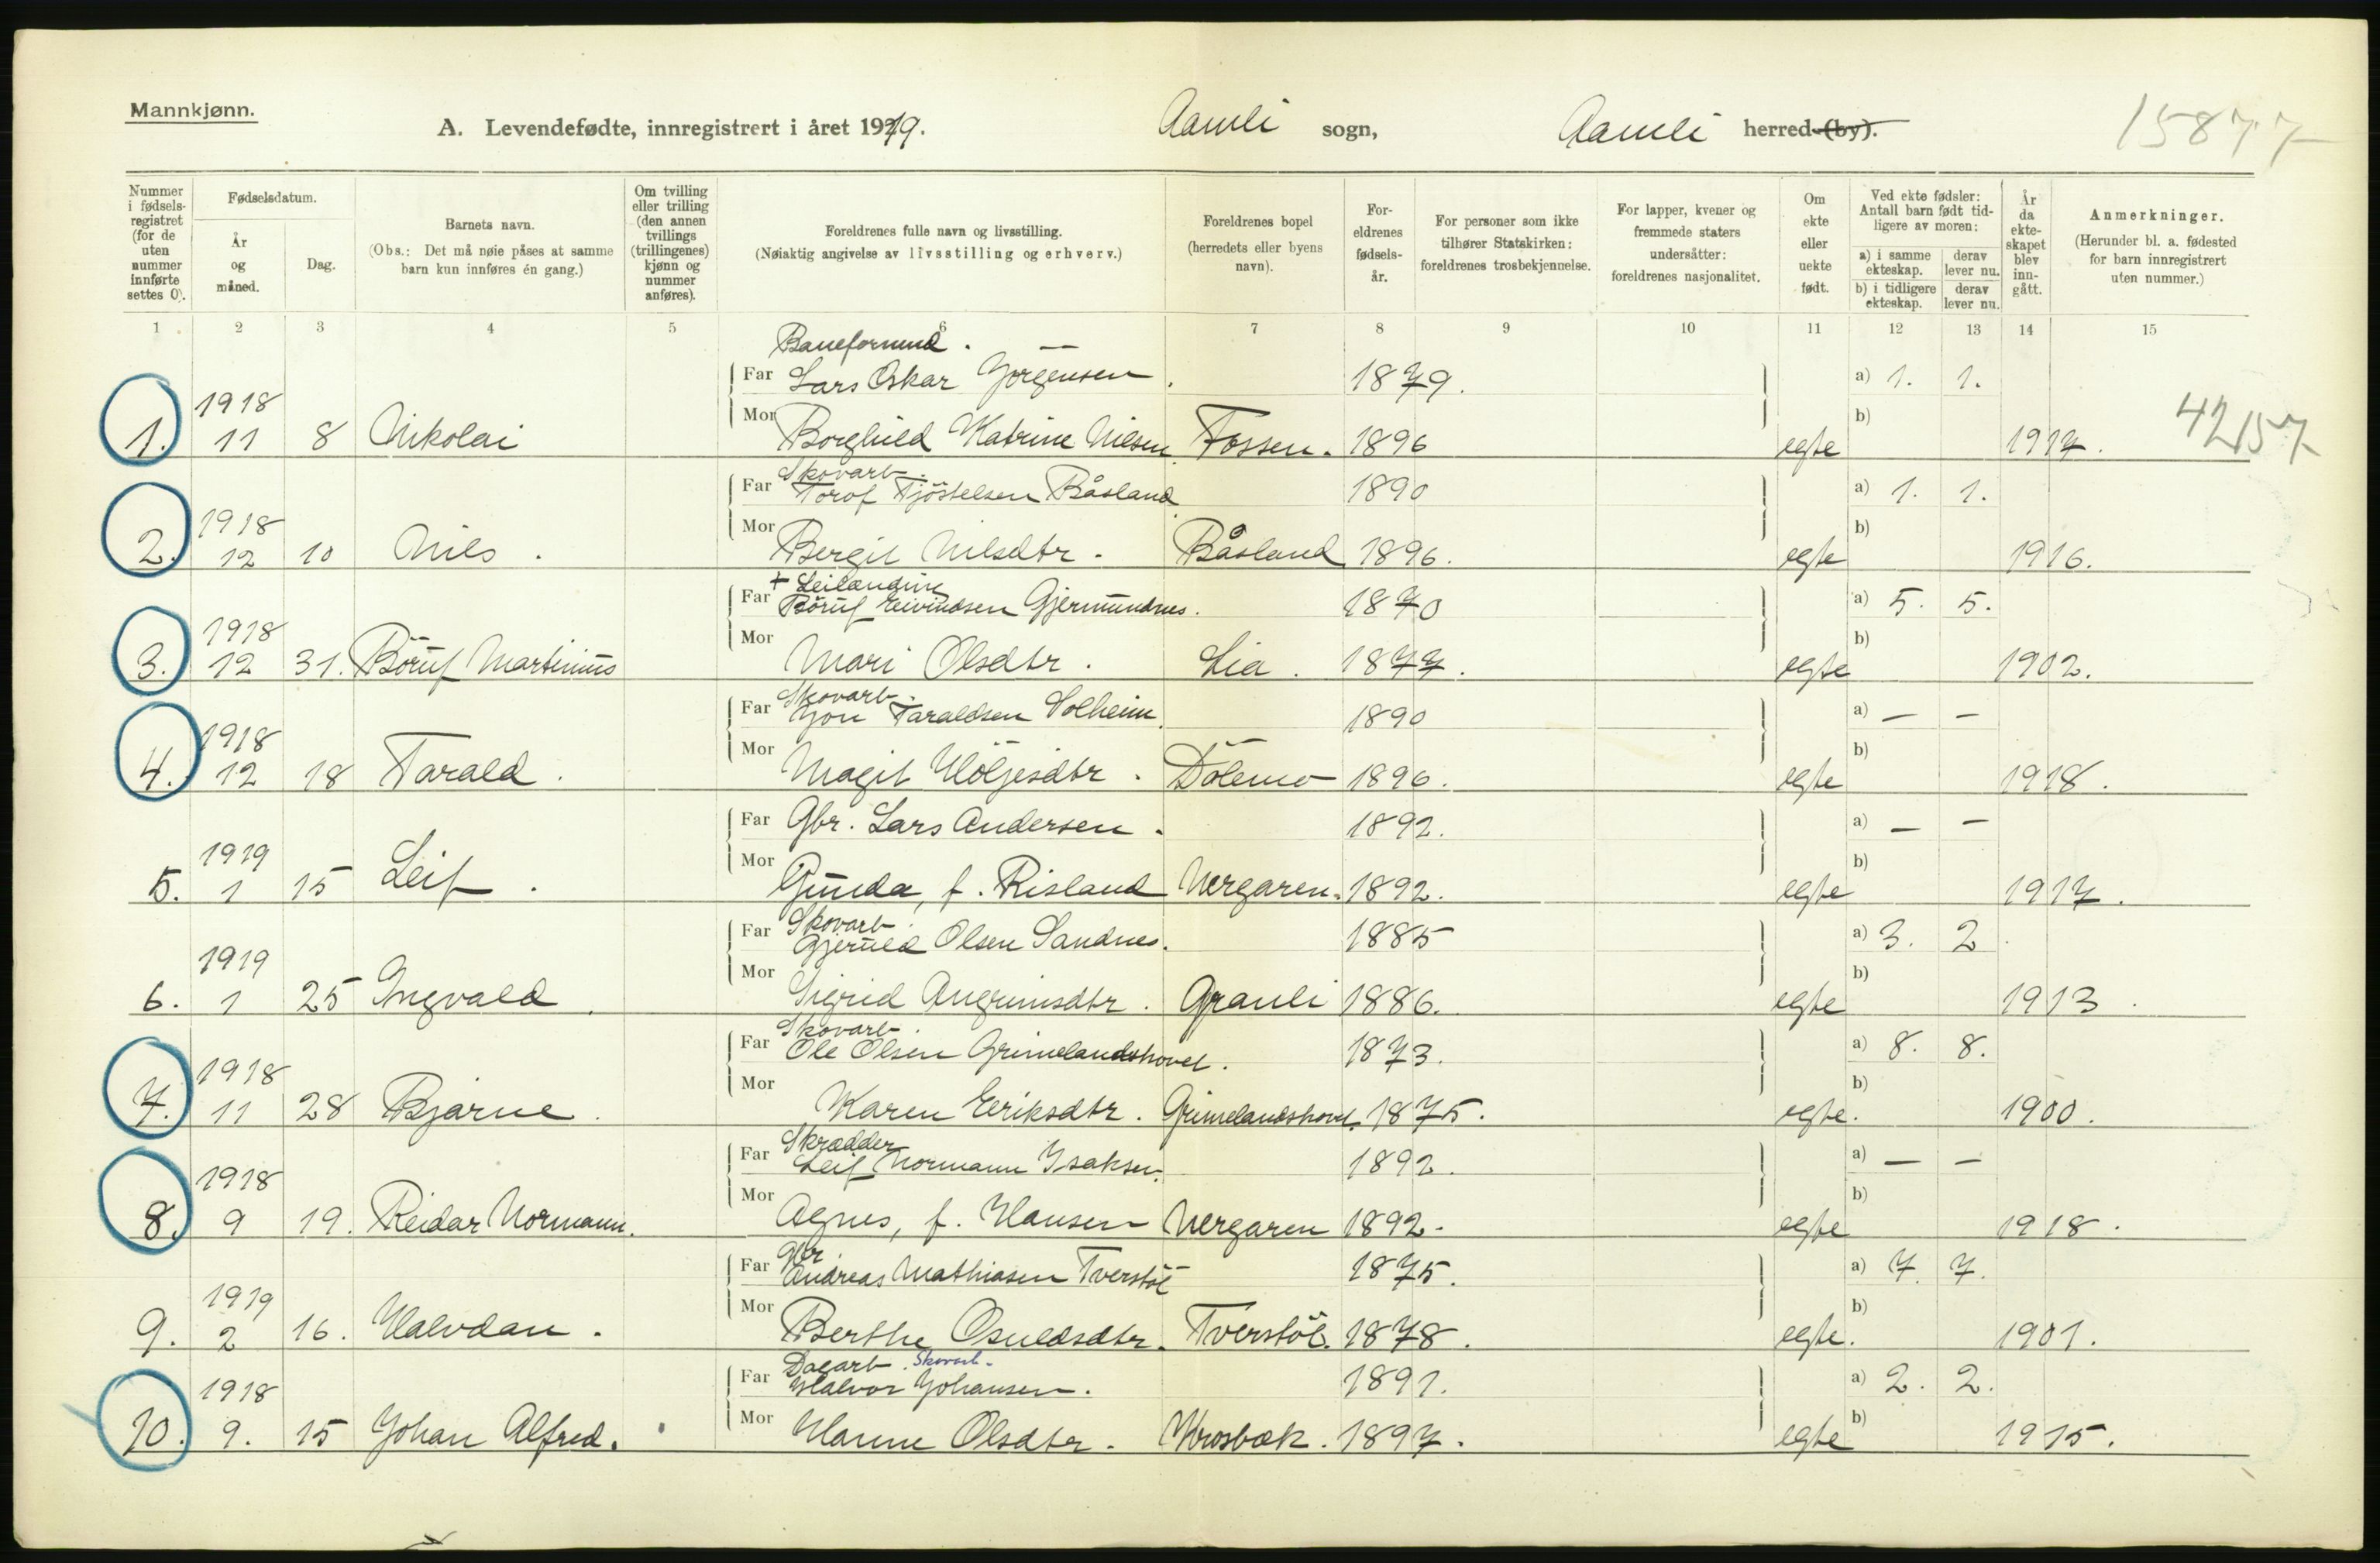 Mannkjønn.
A. Levendefødte, innregistrert i året 1919. Aamli sogn, Aamli herred (by). 15877
Nummer i fødselsregistret (for de uten nummer innførte settes 0). Fødselsdatum. År og måned. Dag. Barnets navn. (Obs.: Det må nøie påses at samme barn kun innføres én gang.) Om tvilling eller trilling (den annen tvillings (trillingenes) kjønn og nummer anføres). Foreldrenes fulle navn og livsstilling. (Nøiaktig angivelse av livsstilling og erhverv.) Foreldrenes bopel (herredets eller byens navn). Foreldrenes fødselsår. For personer som ikke tilhører Statskirken: foreldrenes trosbekjennelse. For lapper, kvener og fremmede staters undersåtter: foreldrenes nasjonalitet. Om ekte eller uekte født. Ved ekte fødsler: Antall barn født tidligere av moren: a) i samme ekteskap. derav lever nu. b) i tidligere ekteskap. derav lever nu. År da ekteskapet blev inngått. Anmerkninger. (Herunder bl. a. fødested for barn innregistrert uten nummer.)
1 2 3 4 5 6 7 8 9 10 11 12 13 14 15
Baneformend.
Far Lars Oskar Jörgensen. 1879. a) 1. 1.
1. 1918 11 8 Nikolai Mor Borghild Katrine Nilsen Fossen. 1896 egte b) 1917. 42157
Skovarb.
Far Torof Tjöstelsen Båsland 1890 a) 1. 1.
2. 1918 12 10 Nils. Mor Bergit Nilsdtr. Båsland 1896. egte b) 1916.
+ Leilænding
Far Böruf Eivindsen Gjermundnes. 1870 a) 5. 5.
3. 1918 12 31. Böruf Martinius Mor Mari Olsdtr. Lia. 1877. egte b) 1902.
Skovarb.
Far Jon Taraldsen Solheim 1890 a) — —
4. 1918 12 18 Tarald. Mor Magit Höljesdtr. Dölemo 1896. egte b) 1918.
Far Gbr. Lars Andersen. 1892. a) — —
5. 1919 1 15 Leif. Mor Gunda, f. Risland Nergaren. 1892. egte b) 1917.
Skovarb.
Far Gjeruld Olsen Sandnes. 1885 a) 3. 2
6. 1919 1 25 Ingvald. Mor Sigrid Angrimsdtr. Granli 1886. egte b) 1913.
Skovarb.
Far Ole Olsen Grimelandshovet. 1873. a) 8. 8.
7. 1918 11 28 Bjarne. Mor Karen Eeriksdtr. Grimelandshovet. 1875. egte. b) 1900.
Skrædder
Far Leif Normann Isaksen. 1892. a) — —
8. 1918 9 19. Reidar Normann. Mor Agnes, f. Hansen Nergaren 1892. egte b) 1918.
Gbr
Far Andreas Mathiasen Tverstöl 1875. a) 7. 7.
9. 1919 2 16. Halvdan. Mor Berthe Osuldsdtr. Tverstöl. 1878. egte. b) 1901.
Dagarb. Skovarb.
Far Halvor Johansen. 1891. a) 2. 2.
10. 1918 9. 15 Johan Alfred. Mor Hanne Olsdtr. Krosbæk. 1897. egte b) 1915.